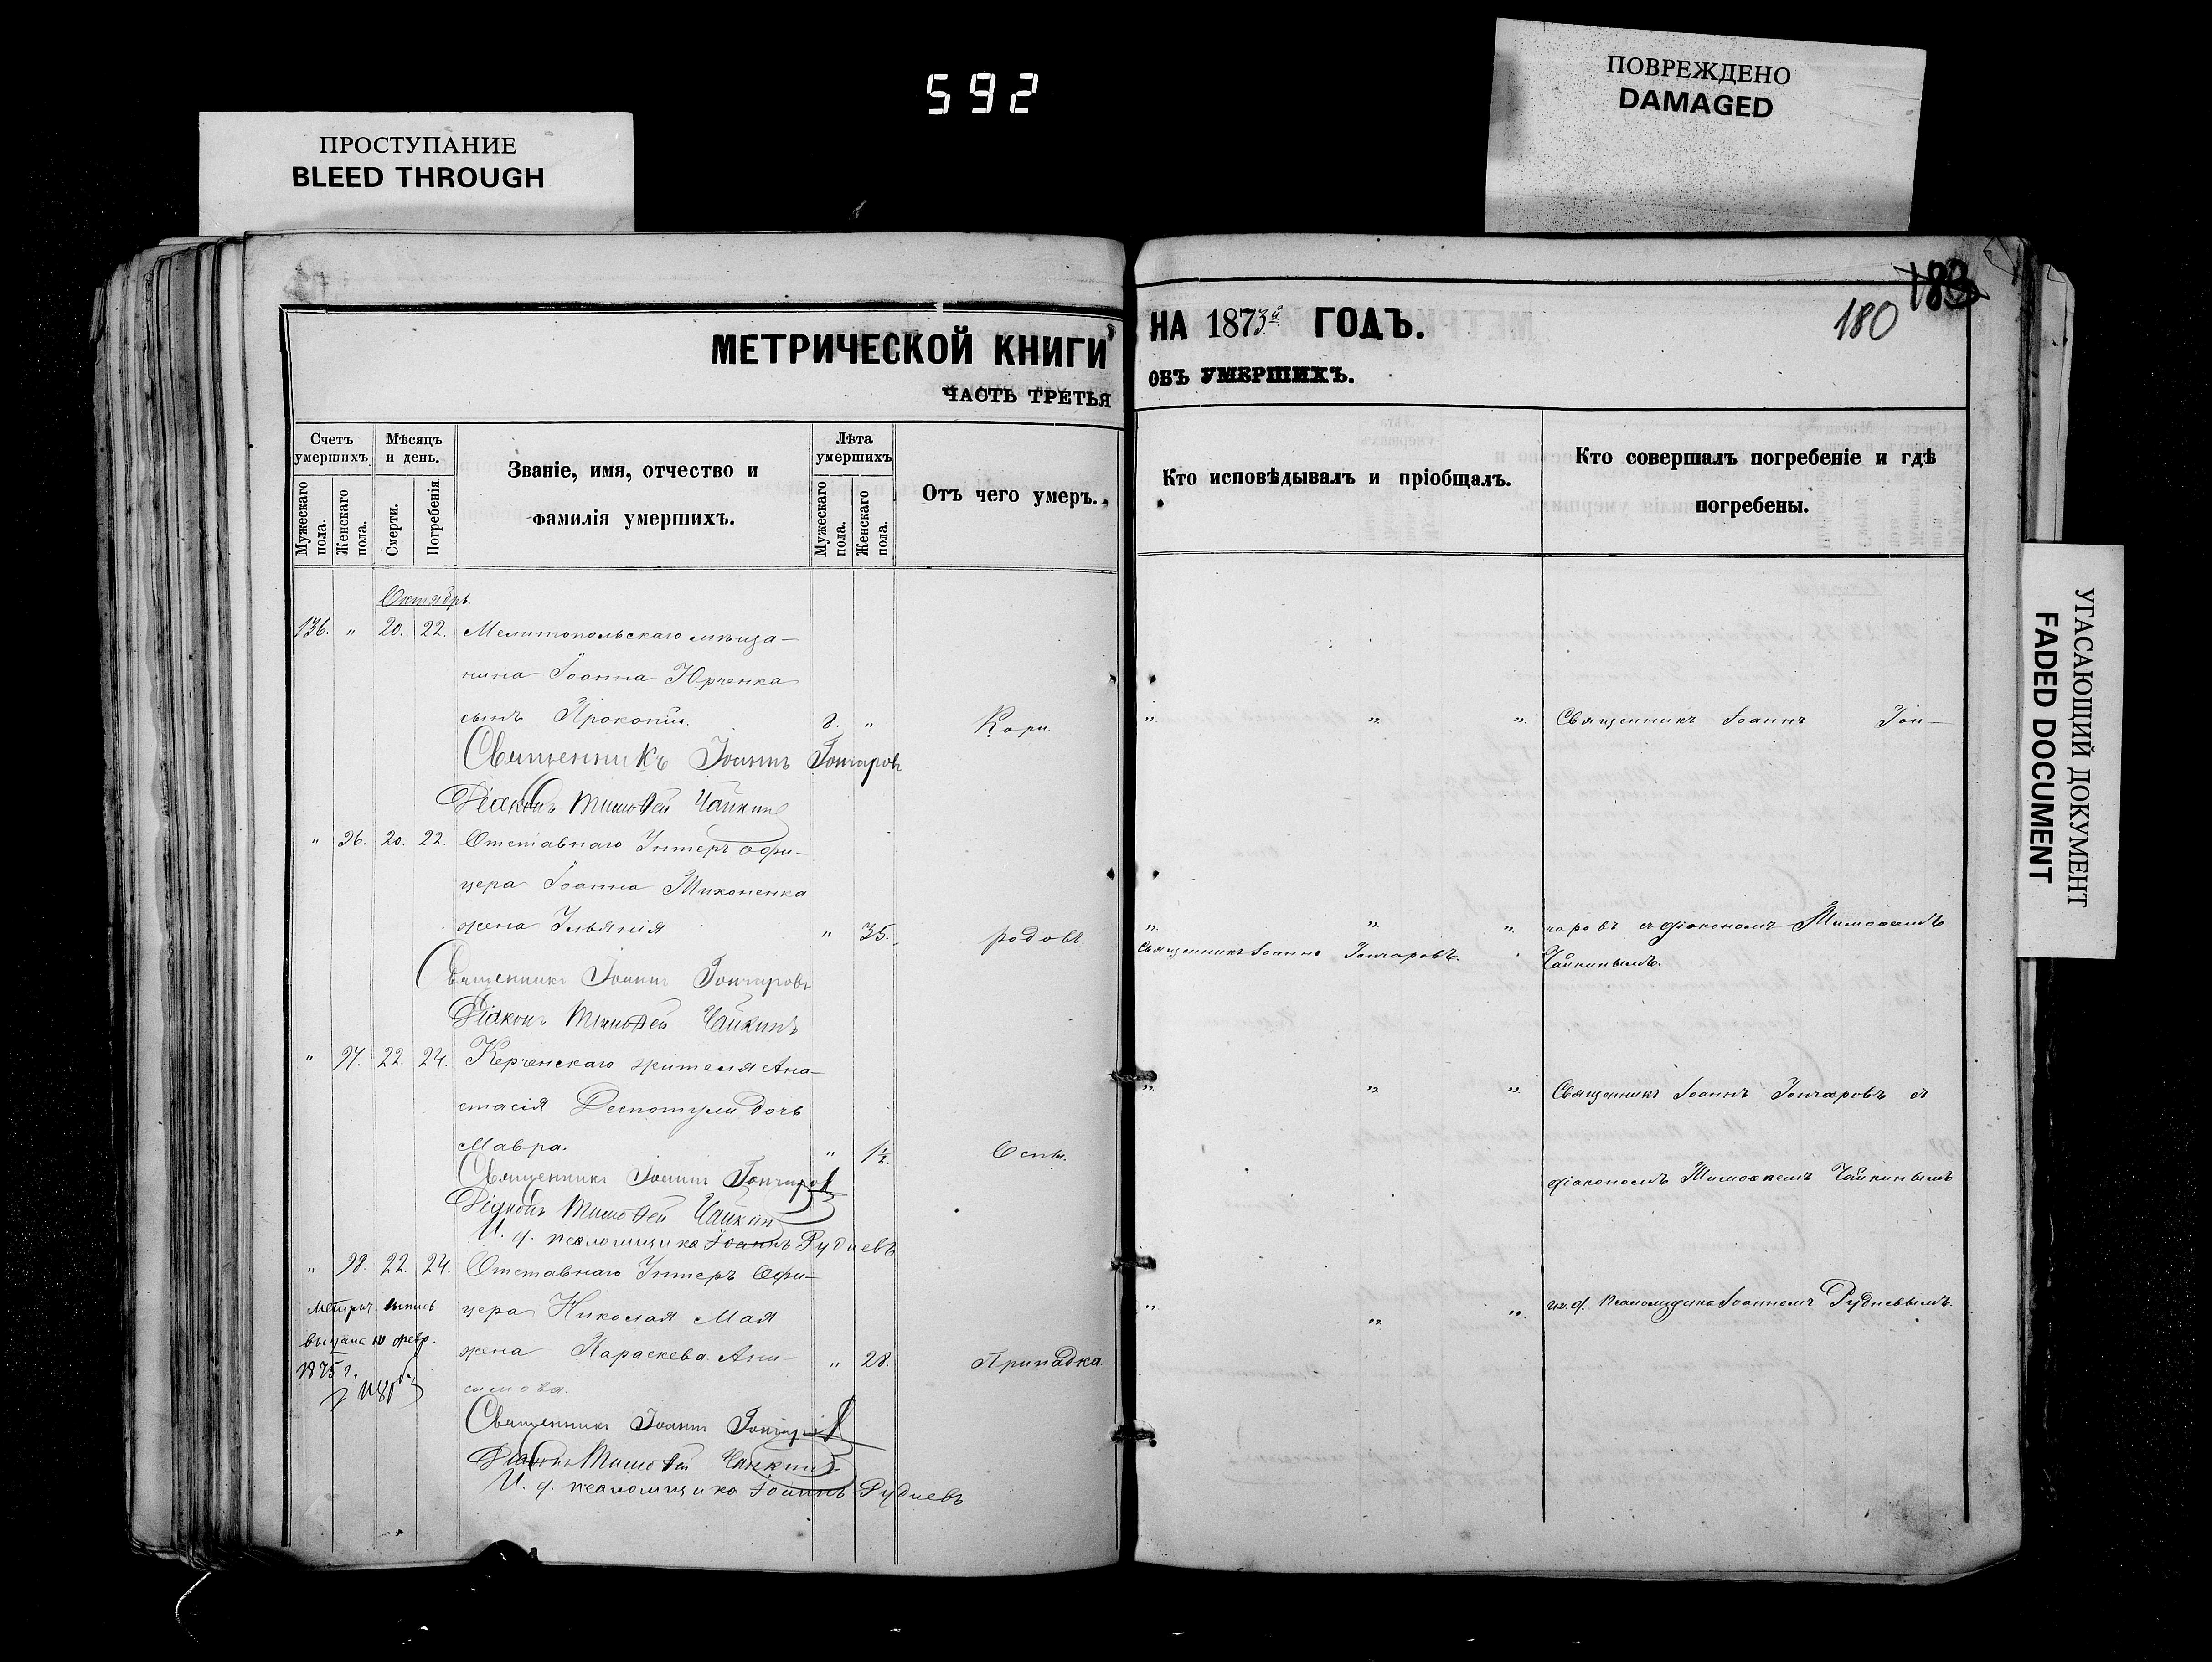 592
ПРОСТУПАНИЕ
BLEED THROUGH
ПОВРЕЖДЕНО
DAMAGED
УГАСАЮЩИЙ ДОКУМЕНТ
FADED DOCUMENT
183
180
МЕТРИЧЕСКОЙ КНИГИ
ЧАСТЬ ТРЕТЬЯ
НА 1873й ГОДЪ.
ОБЪ УМЕРШИХЪ.
Счетъ умершихъ.
Мужескаго пола.
Женскаго пола.
Мѣсяцъ и день.
Смерти.
Погребенія.
Званіе, имя, отчество и
фамилія умершихъ.
Лѣта умершихъ
Мужескаго пола.
Женскаго пола.
Отъ чего умеръ.
Кто исповѣдывалъ и пріобщалъ.
Кто совершалъ погребеніе и гдѣ
погребены.
Октябрь.
136. " 20. 22. Мелитопольскаго мѣща-
нина Іоанна Юрченка
сынъ Прокопій. 8. " Кори. " " " Священникъ Іоаннъ Гон-
Священникъ Іоаннъ Гончаровъ
Діаконъ Тимоѳей Чайкинъ
" 96. 20. 22. Отставнаго Унтеръ офи-
цера Іоанна
жена Ульянія " 35. родовъ. " " " чаровъ съ діакономъ Тимоѳеемъ
Священникъ Іоаннъ Гончаровъ. Чайкинымъ.
Священникъ Іоаннъ Гончаровъ
Діаконъ Тимоѳей Чайкинъ
" 97. 22. 24. Керченскаго жителя Ана-
" " " Священникъ Іоаннъ Гончаровъ съ
стасія Деспотули дочь
Мавра. " 1½. Оспы.
діакономъ Тимоѳеемъ Чайкинымъ
Священникъ Іоаннъ Гончаровъ
Діаконъ Тимоѳей Чайкинъ
И. д. псаломщика Іоаннъ Рудневъ
" 98. 22. 24. Отставнаго Унтеръ Офи-
цера Николая Мая
" " " и. д. псаломщика Іоанномъ Рудневымъ.
жена Параскева Ани- " 28. Припадка.
симова.
Метрич. выпись
выдана 10 февр.
1875 г.
Священникъ Іоаннъ Гончаровъ
Діаконъ Тимоѳей Чайкинъ
И. д. псаломщика Іоаннъ Рудневъ